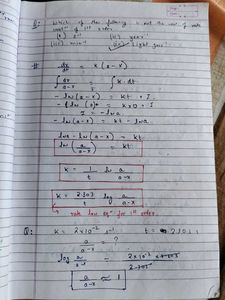 Q: Which of the following is not the unit of rate
const of 1st order.
(i) s-1 (ii) year-1
(iii) min-1 (iv) light year-1
# dx/dt = k(a-x)
∫ dx/a-x = ∫ k.dt
-ln(a-x) = kt + I
I = -lna
-ln(a-x) = kt - lna
lna - ln(a-x) = kt
ln(a/a-x) = kt
K = 1/t ln a/a-x
K = 2.303/t log a/a-x
rate law eqn for 1st order.
Q: K = 2×10-2 s-1
a/a-x = ?
log a/a-x =
a/a-x ≈ 1